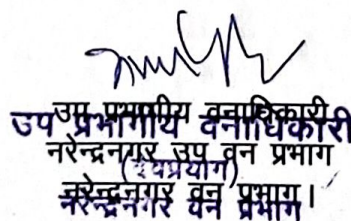 उप प्रभागीय वनाधिकारी
उप प्रभागीय वनाधिकारी
नरेन्द्रनगर उप वन प्रभाग
नरेन्द्रनगर वन प्रभाग।
नरेन्द्रनगर वन प्रभाग